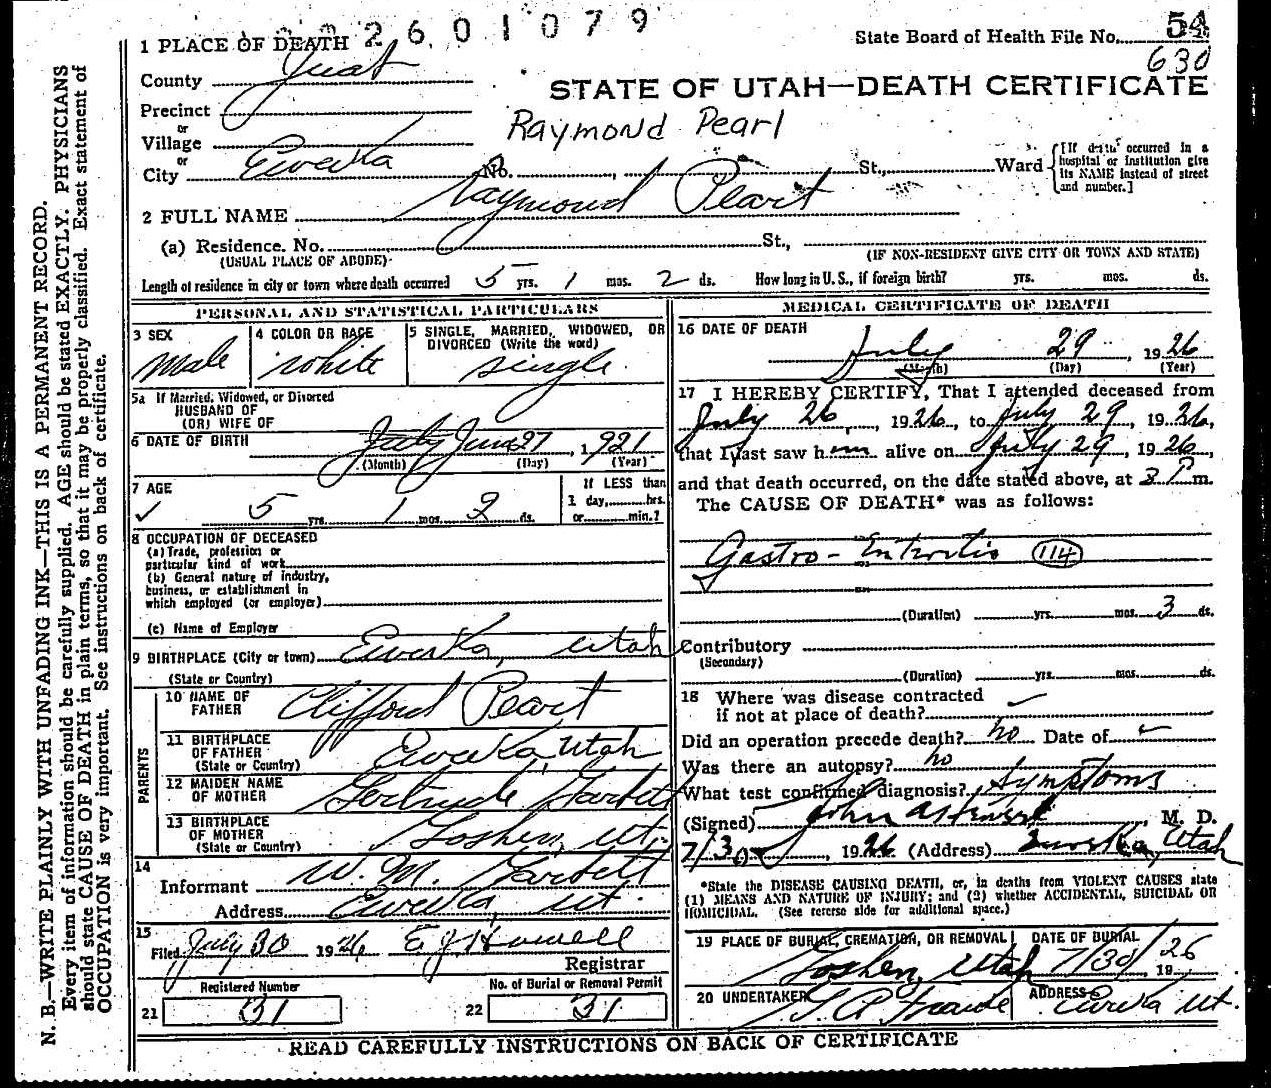 2601079
State Board of Health File No. 54
630
1 PLACE OF DEATH
County Juab
STATE OF UTAH—DEATH CERTIFICATE
Precinct
or
Village
Raymond Pearl
or
City Eureka No. , St., Ward [If death occurred in a hospital or institution give its NAME instead of street and number.]
2 FULL NAME Raymond Peart
(a) Residence. No. St.,
(USUAL PLACE OF ABODE) (IF NON-RESIDENT GIVE CITY OR TOWN AND STATE)
Length of residence in city or town where death occurred 5 yrs. 1 mos. 2 ds. How long in U. S., if foreign birth? yrs. mos. ds.
PERSONAL AND STATISTICAL PARTICULARS
3 SEX
Male
4 COLOR OR RACE
White
5 SINGLE, MARRIED, WIDOWED, OR
DIVORCED (Write the word)
single
5a If Married, Widowed, or Divorced
HUSBAND OF
(OR) WIFE OF
6 DATE OF BIRTH July June 27, 1921
(Month) (Day) (Year)
7 AGE
✓ 5 yrs. 1 mos. 2 ds.
If LESS than
1 day, hrs.
or min.?
8 OCCUPATION OF DECEASED
(a) Trade, profession or
particular kind of work
(b) General nature of industry,
business, or establishment in
which employed (or employer)
(c) Name of Employer
9 BIRTHPLACE (City or town) Eureka, Utah
(State or Country)
PARENTS
10 NAME OF
FATHER Clifford Peart
11 BIRTHPLACE
OF FATHER Eureka, Utah
(State or Country)
12 MAIDEN NAME
OF MOTHER Gertrude Garbett
13 BIRTHPLACE
OF MOTHER Goshen, Ut.
(State or Country)
14
Informant W. M. Garbett
Address Eureka, Ut.
15
Filed July 30 1926 E. J. Howell
Registrar
Registered Number
21 31
No. of Burial or Removal Permit
22 31
MEDICAL CERTIFICATE OF DEATH
16 DATE OF DEATH
July 29, 1926
(Month) (Day) (Year)
17 I HEREBY CERTIFY, That I attended deceased from
July 26, 1926, to July 29, 1926,
that I last saw him alive on July 29, 1926,
and that death occurred, on the date stated above, at 3 P.m.
The CAUSE OF DEATH* was as follows:
Gastro-Enteritis 114
(Duration) yrs. mos. 3 ds.
Contributory
(Secondary)
(Duration) yrs. mos. ds.
18 Where was disease contracted
if not at place of death?
Did an operation precede death? no Date of
Was there an autopsy? no
What test confirmed diagnosis? Symptoms
(Signed) John , M. D.
7/30, 1926 (Address) Eureka, Utah
*State the DISEASE CAUSING DEATH, or, in deaths from VIOLENT CAUSES state
(1) MEANS AND NATURE OF INJURY; and (2) whether ACCIDENTAL, SUICIDAL OR
HOMICIDAL. (See reverse side for additional space.)
19 PLACE OF BURIAL, CREMATION, OR REMOVAL
Goshen, Utah
DATE OF BURIAL
7/30/ 1926
20 UNDERTAKER
ADDRESS
Eureka Ut.
READ CAREFULLY INSTRUCTIONS ON BACK OF CERTIFICATE
N. B.—WRITE PLAINLY WITH UNFADING INK—THIS IS A PERMANENT RECORD.
Every item of information should be carefully supplied. AGE should be stated EXACTLY. PHYSICIANS
should state CAUSE OF DEATH in plain terms, so that it may be properly classified. Exact statement of
OCCUPATION is very important. See instructions on back of certificate.